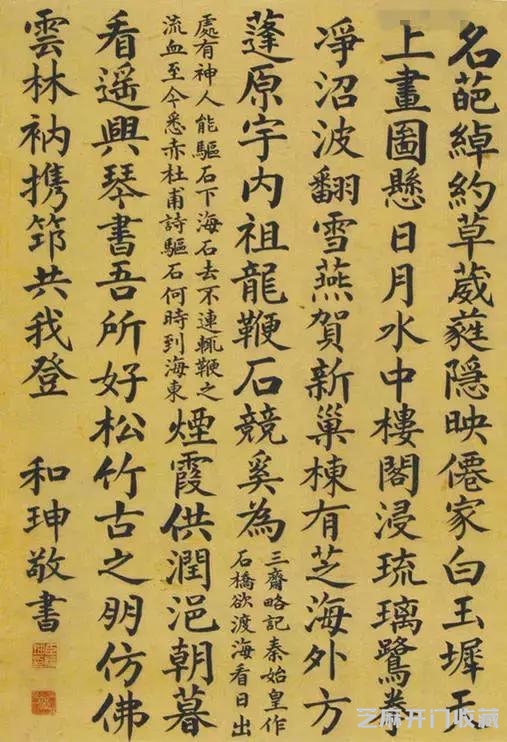 名葩綽約草葳蕤隱映僊家白玉墀玉
上畫圖懸日月水中樓閣浸琉璃鷺拳
凈沼波翻雪燕賀新巢棟有芝海外方
蓬原宇内祖龍鞭石競奚為
三齋略記秦始皇作
石橋欲渡海看日出
處有神人能驅石下海石去不連輒鞭之
流血至今悉赤杜甫詩驅石何時到海東
煙霞供潤浥朝暮
看遥興琴書吾所好松竹古之朋仿佛
雲林衲携筇共我登 和珅敬書
芝麻开门收藏